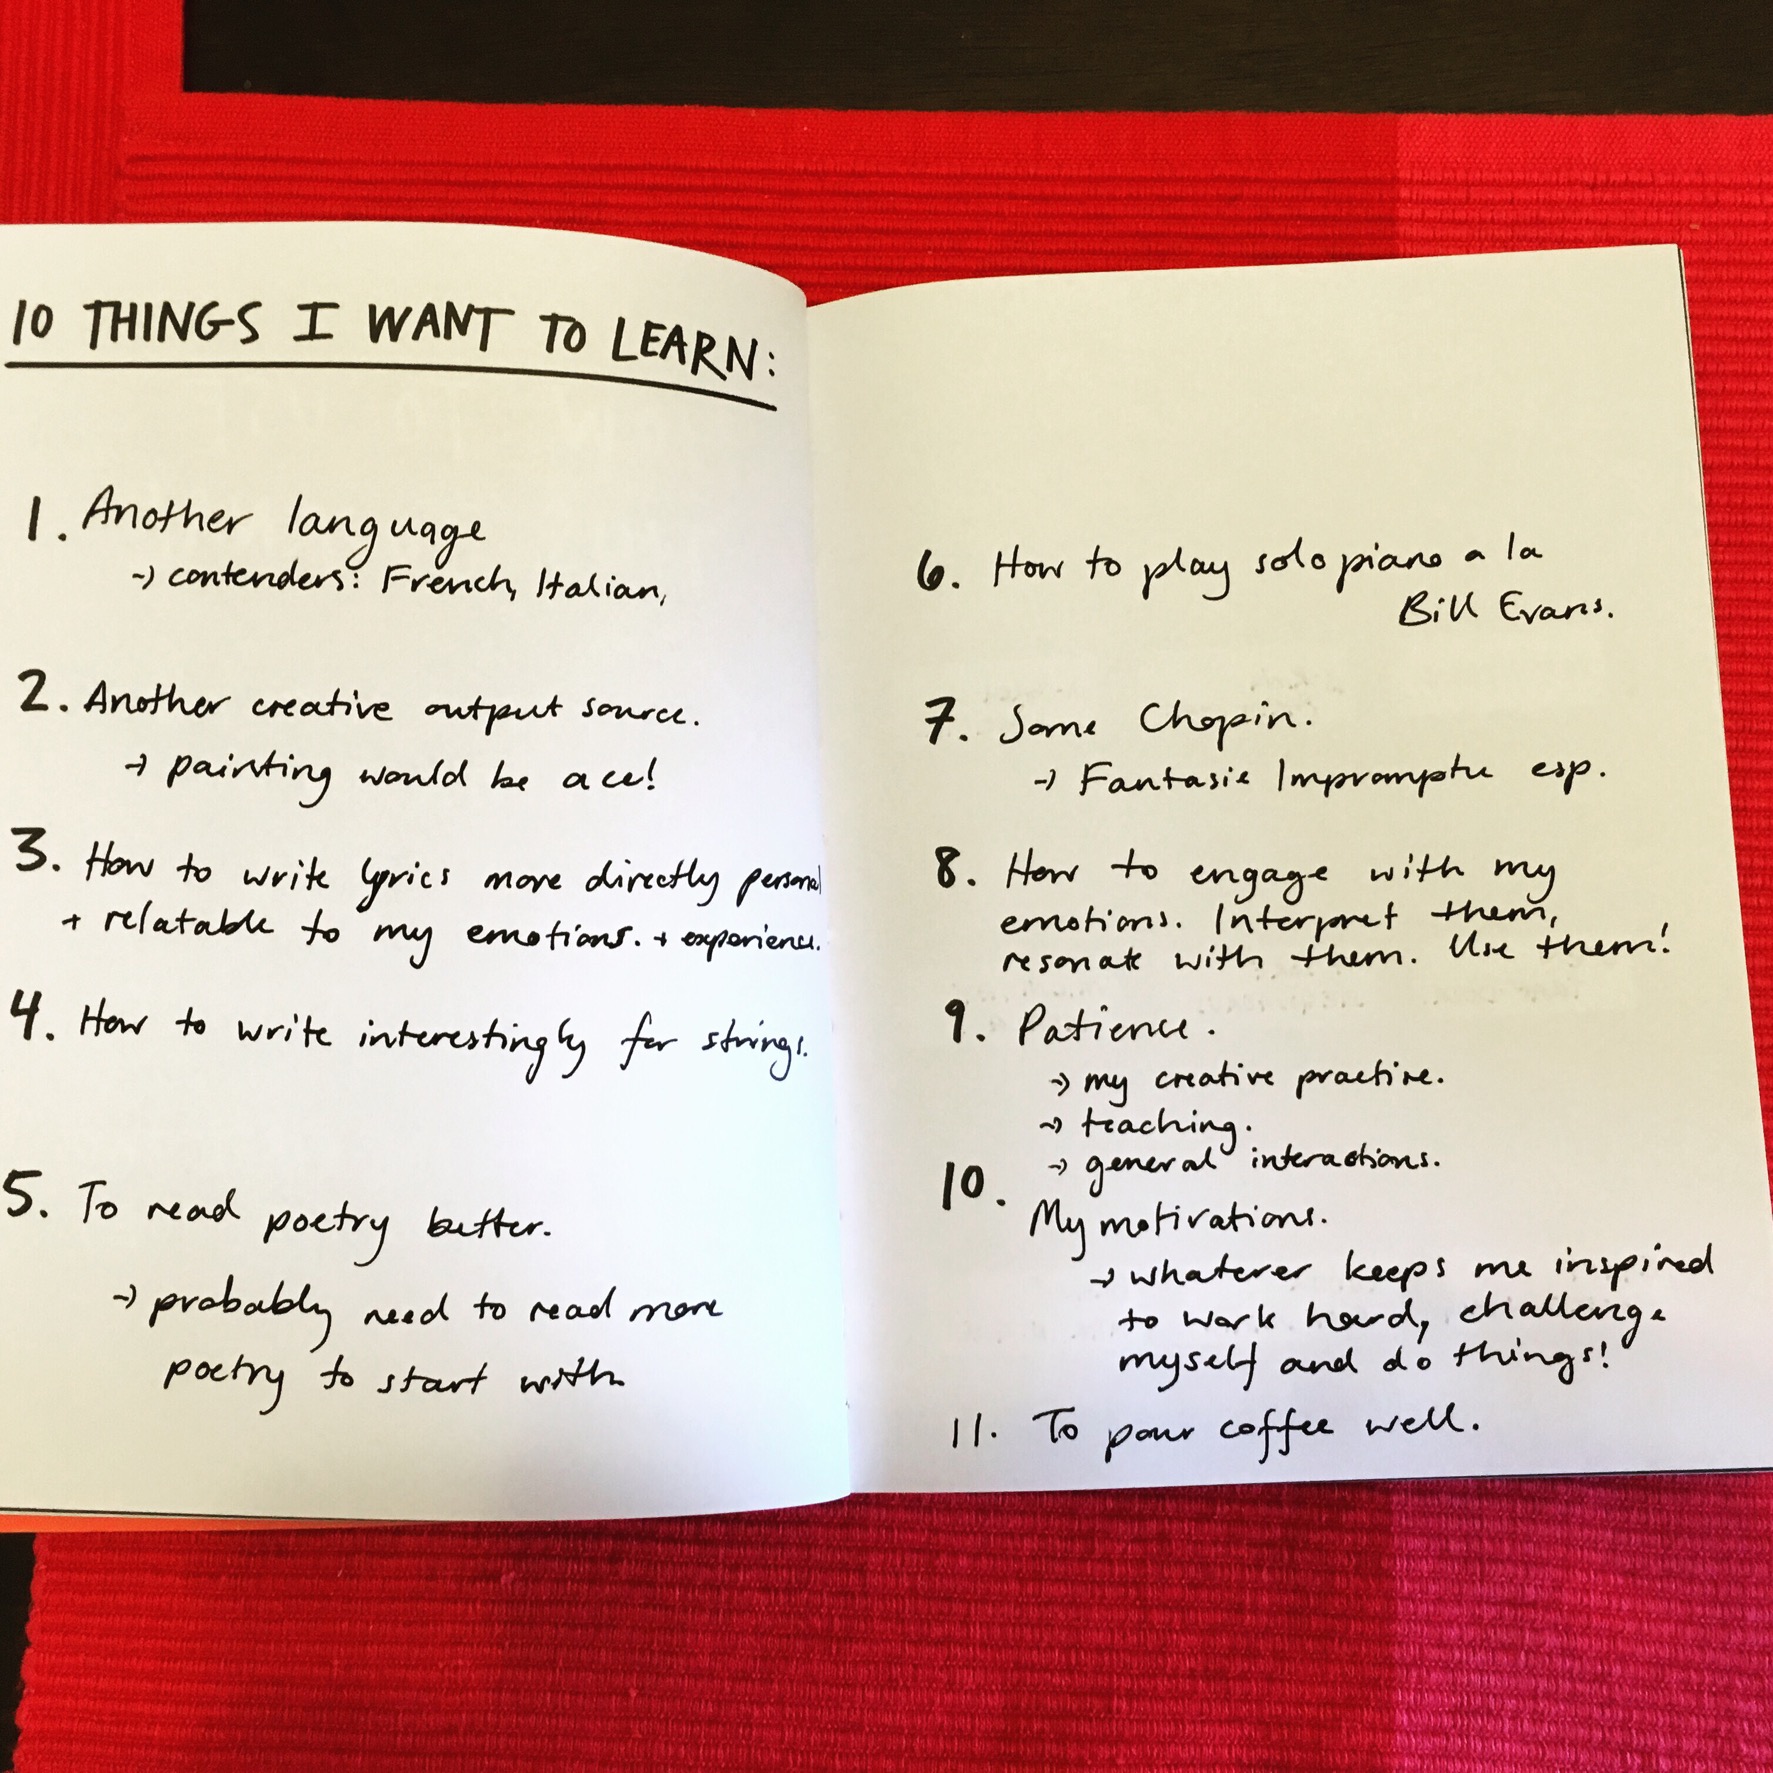 10 THINGS I WANT TO LEARN:
1. Another language
→ contenders: French, Italian,
2. Another creative output source.
→ painting would be ace!
3. How to write lyrics more directly personal
+ relatable to my emotions. + experience.
4. How to write interestingly for strings.
5. To read poetry better.
→ probably need to read more
poetry to start with
6. How to play solo piano a la
Bill Evans.
7. Some Chopin.
→ Fantasie Impromptu esp.
8. How to engage with my
emotions. Interpret them,
resonate with them. Use them!
9. Patience.
→ my creative practice.
→ teaching.
→ general interactions.
10.
My motivations.
→ whatever keeps me inspired
to work hard, challenge
myself and do things!
11. To pour coffee well.